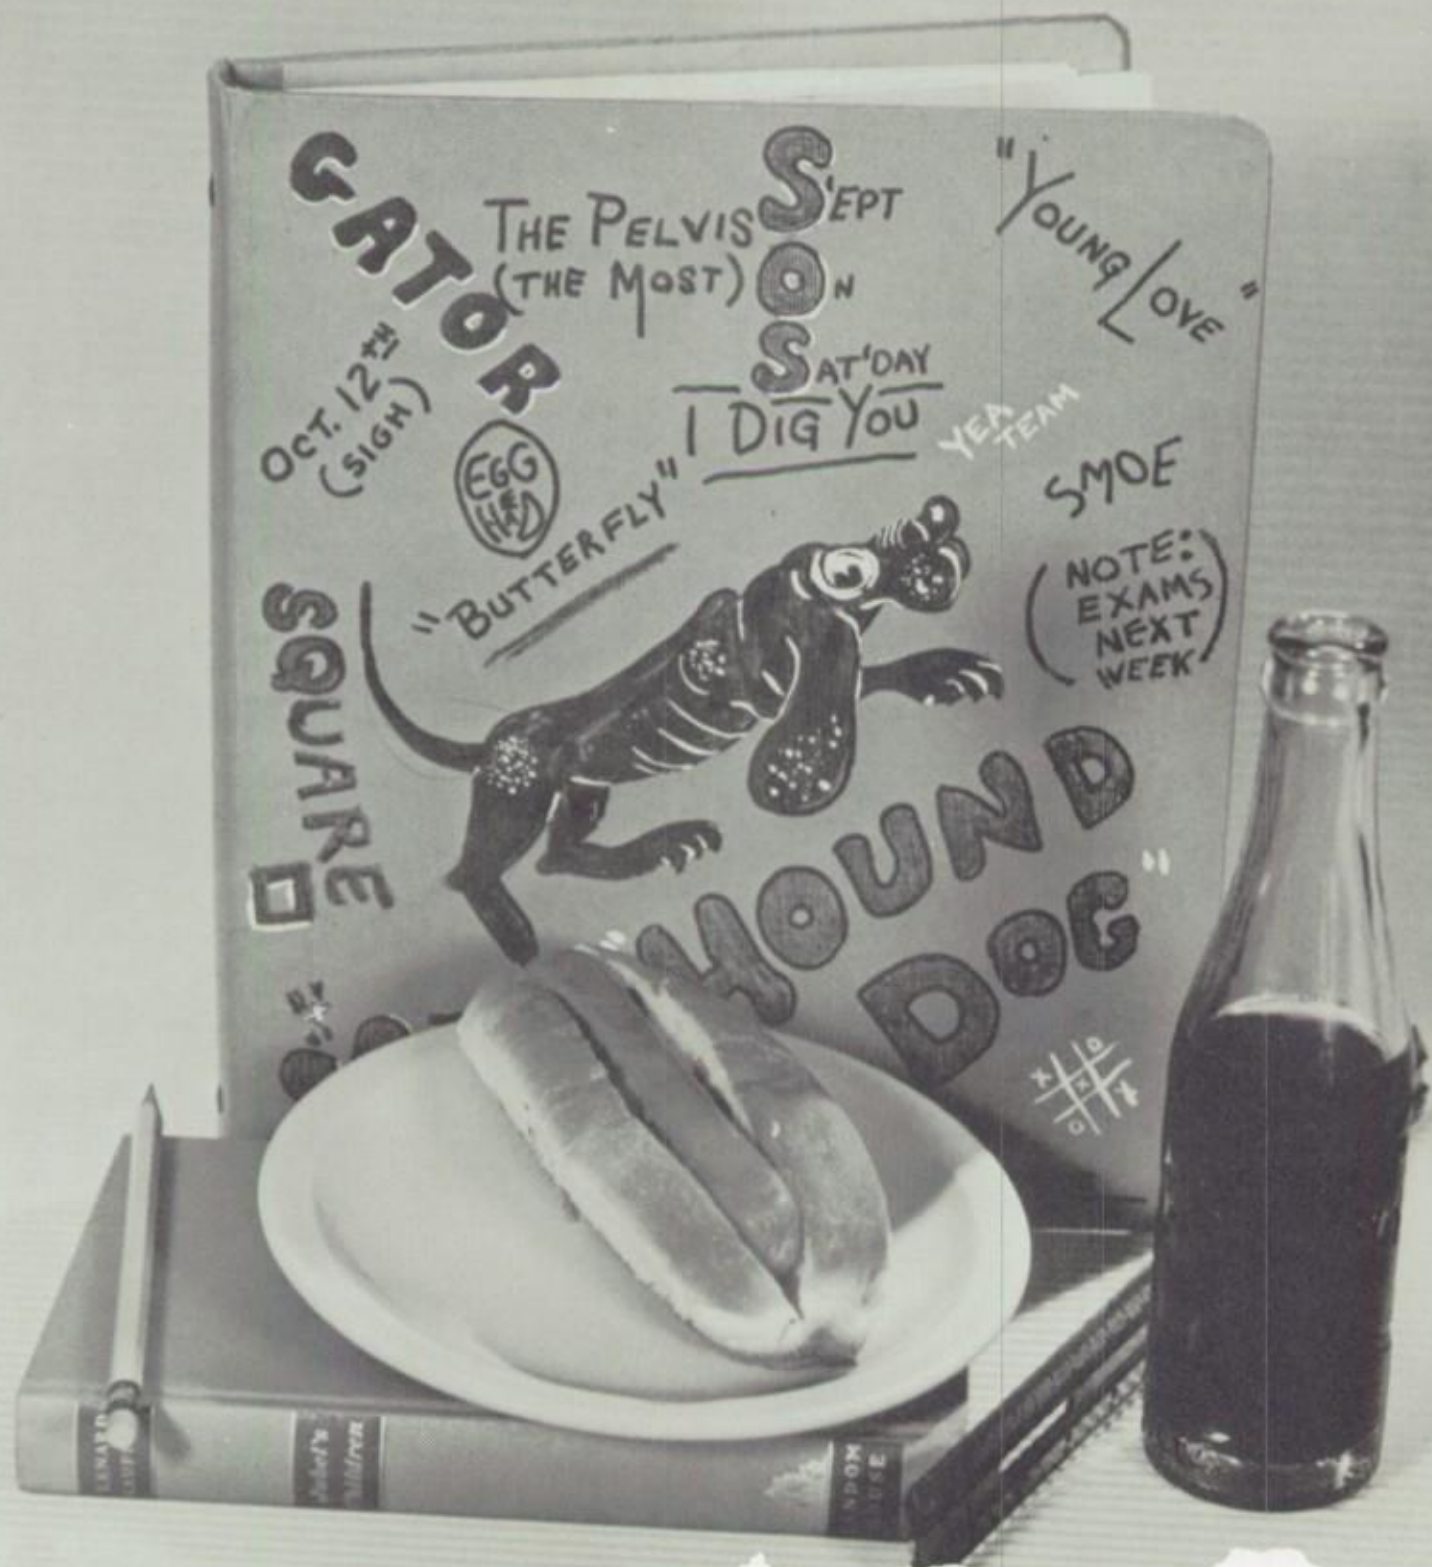 GATOR
THE PELVIS
(THE MOST)
S'EPT
ON
SAT'DAY
"YOUNG LOVE"
OCT. 12TH
(SIGH)
I DIG YOU
YEA
TEAM
EGG
HEAD
"BUTTERFLY"
SMOE
(NOTE:
EXAMS
NEXT
WEEK)
SQUARE
"HOUND
DOG"
O
X
X
X
O